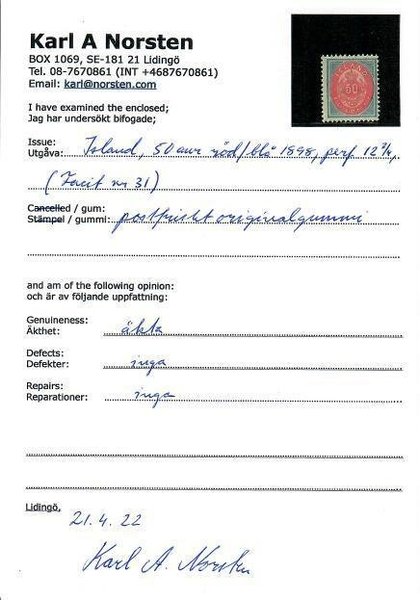 Karl A Norsten
BOX 1069, SE-181 21 Lidingö
Tel. 08-7670861 (INT +4687670861)
Email: karl@norsten.com
50
I have examined the enclosed;
Jag har undersökt bifogade;
Issue:
Utgåva: Island, 50 aur röd/blå 1898, perf 12 3/4,
(Facit nr 31)
Cancelled / gum:
Stämpel / gummi: postfriskt originalgummi
and am of the following opinion:
och är av följande uppfattning:
Genuineness:
Äkthet: äkta
Defects:
Defekter: inga
Repairs:
Reparationer: inga
Lidingö,
21.4.22
Karl A. Norsten